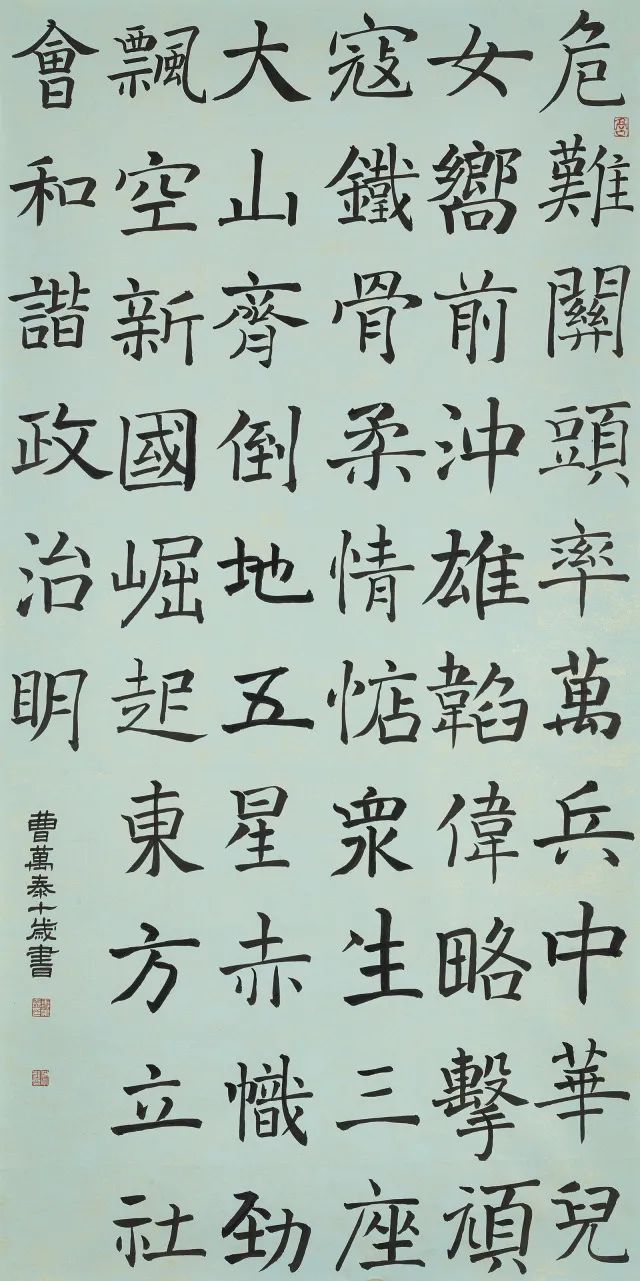 危難關頭率萬兵中華兒
女嚮前沖雄韜偉略擊頑
寇鐵骨柔情惦衆生三座
大山齊倒地五星赤幟勁
飄空新國崛起東方立社
會和諧政治明
曹萬泰十歲書